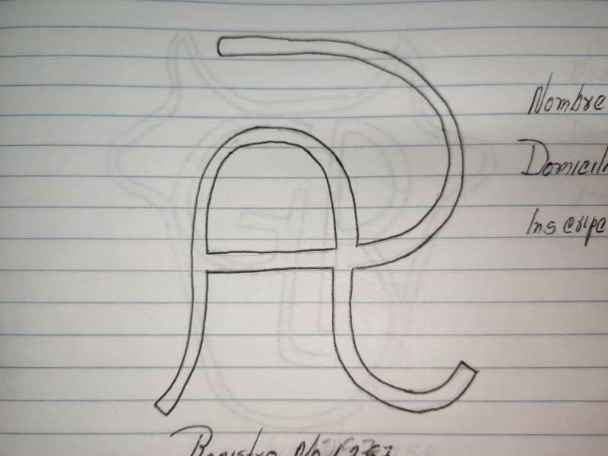 Nombre
Domicil
Inscripc
Registro No.